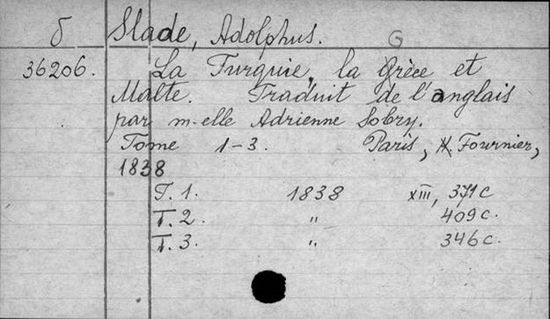 б Slade, Adolphus.
G
36206. La Turquie, la Grèce et
Malte. Traduit de l'anglais
par m-elle Adrienne Sobry.
Tome 1-3. Paris, H. Fournier,
1838
T. 1. 1838 XIII, 371 c
T. 2. " 409 c.
T. 3. " 346 c.